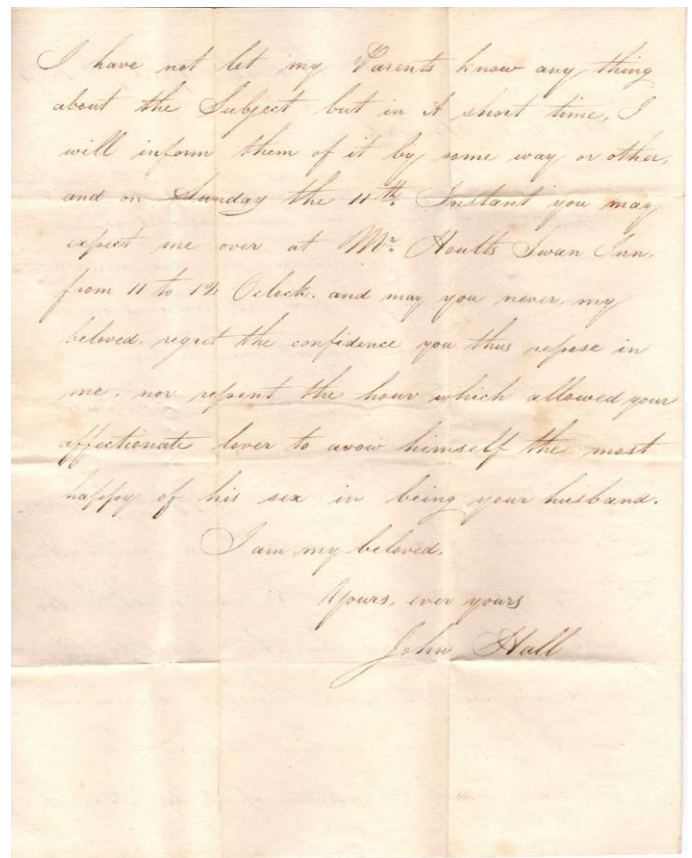 I have not let my Parents know any thing
about the Subject but in A short time, I
will inform them of it by some way or other,
and on Sunday the 11th. Instant you may
expect me over at Mr. Hoults Swan Inn.
from 11 to 12 Oclock. and may you never, my
beloved, regret the confidence you thus repose in
me, nor repent the hour which allowed your
affectionate lover to avow himself the most
happy of his sex in being your husband.
I am my beloved,
Yours, ever yours
John Hall